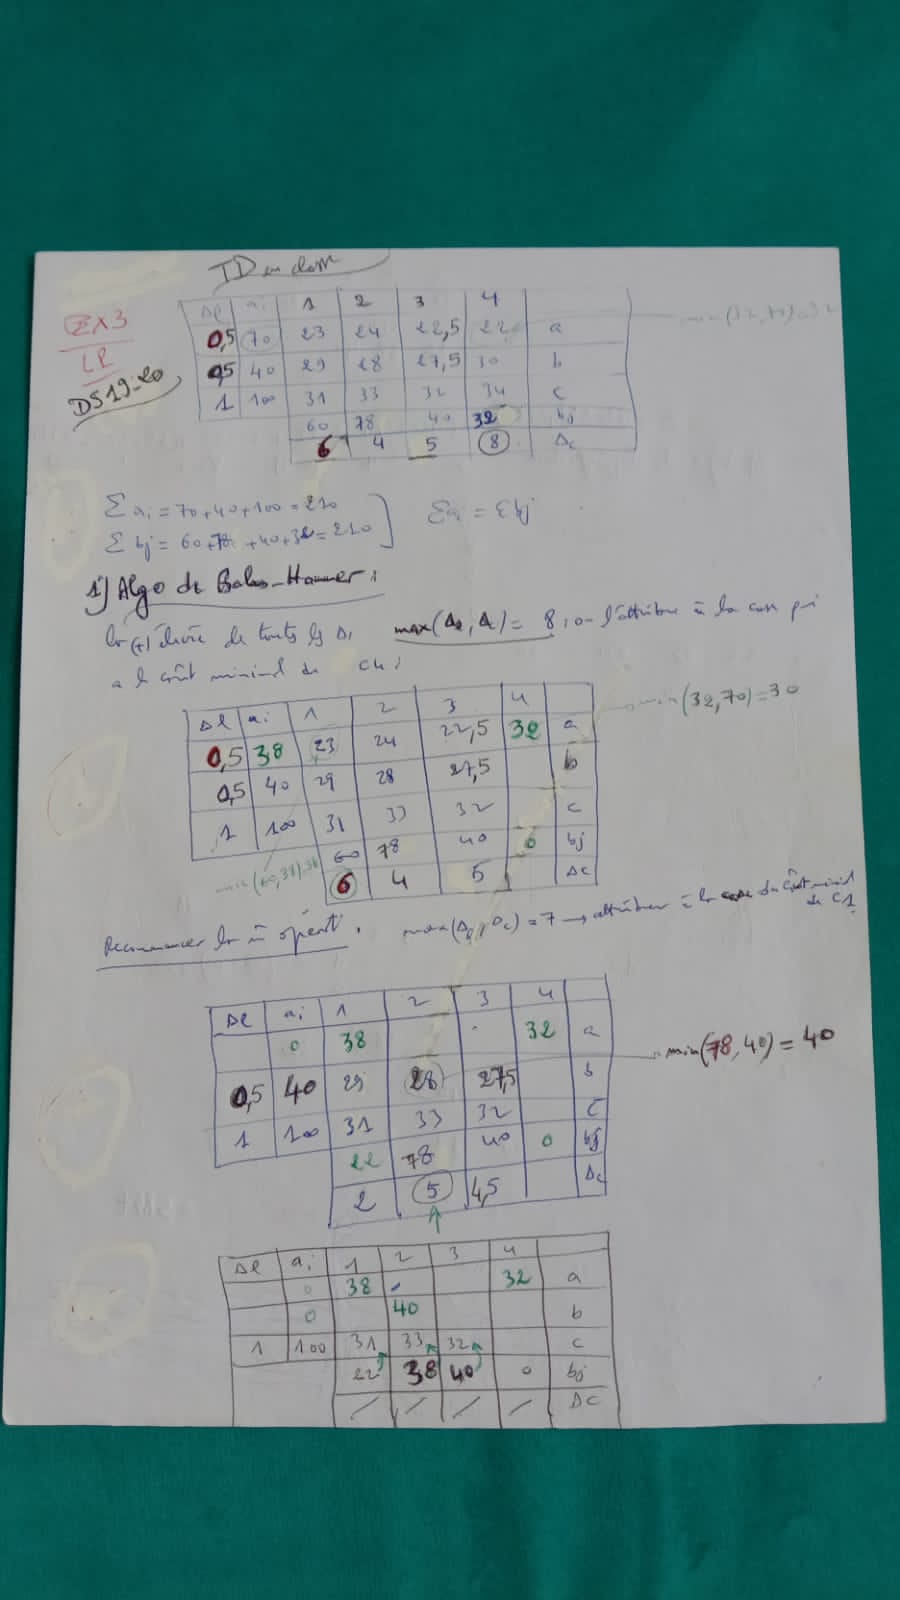 TD en classe
EX3
LP
DS19-20
Δl ai 1 2 3 4
0,5 70 23 24 22,5 22 a
0,5 40 29 28 27,5 30 b
1 100 31 33 32 34 c
60 78 40 32 bj
6 4 5 8 Δc
min(32,70)=32
Σ ai = 70+40+100=210
Σ bj = 60+78+40+32=210
Σai = Σbj
1°) Algo de Balas-Hammer :
la (+) élevée de touts les Δ, max(Δl, Δc) = 8, on l'attribue à la case qui
a le coût minimal de C4 :
Δl ai 1 2 3 4
0,5 38 23 24 22,5 32 a
0,5 40 29 28 27,5 b
1 100 31 33 32 c
60 78 40 0 bj
6 4 5 Δc
min(32,70)=30
min(60,38)=38
Recommencer la m̂ opérat°. max(Δl, Δc) = 7 → attribuer à la case du coût minimal
de C1
Δl ai 1 2 3 4
0 38 32 a
0,5 40 29 28 27,5 b
1 100 31 33 32 c
22 78 40 0 bj
2 5 4,5 Δc
min(78,40) = 40
Δl ai 1 2 3 4
0 38 - 32 a
0 40 b
1 100 31 33 32 c
22 38 40 0 bj
/ / / / Δc